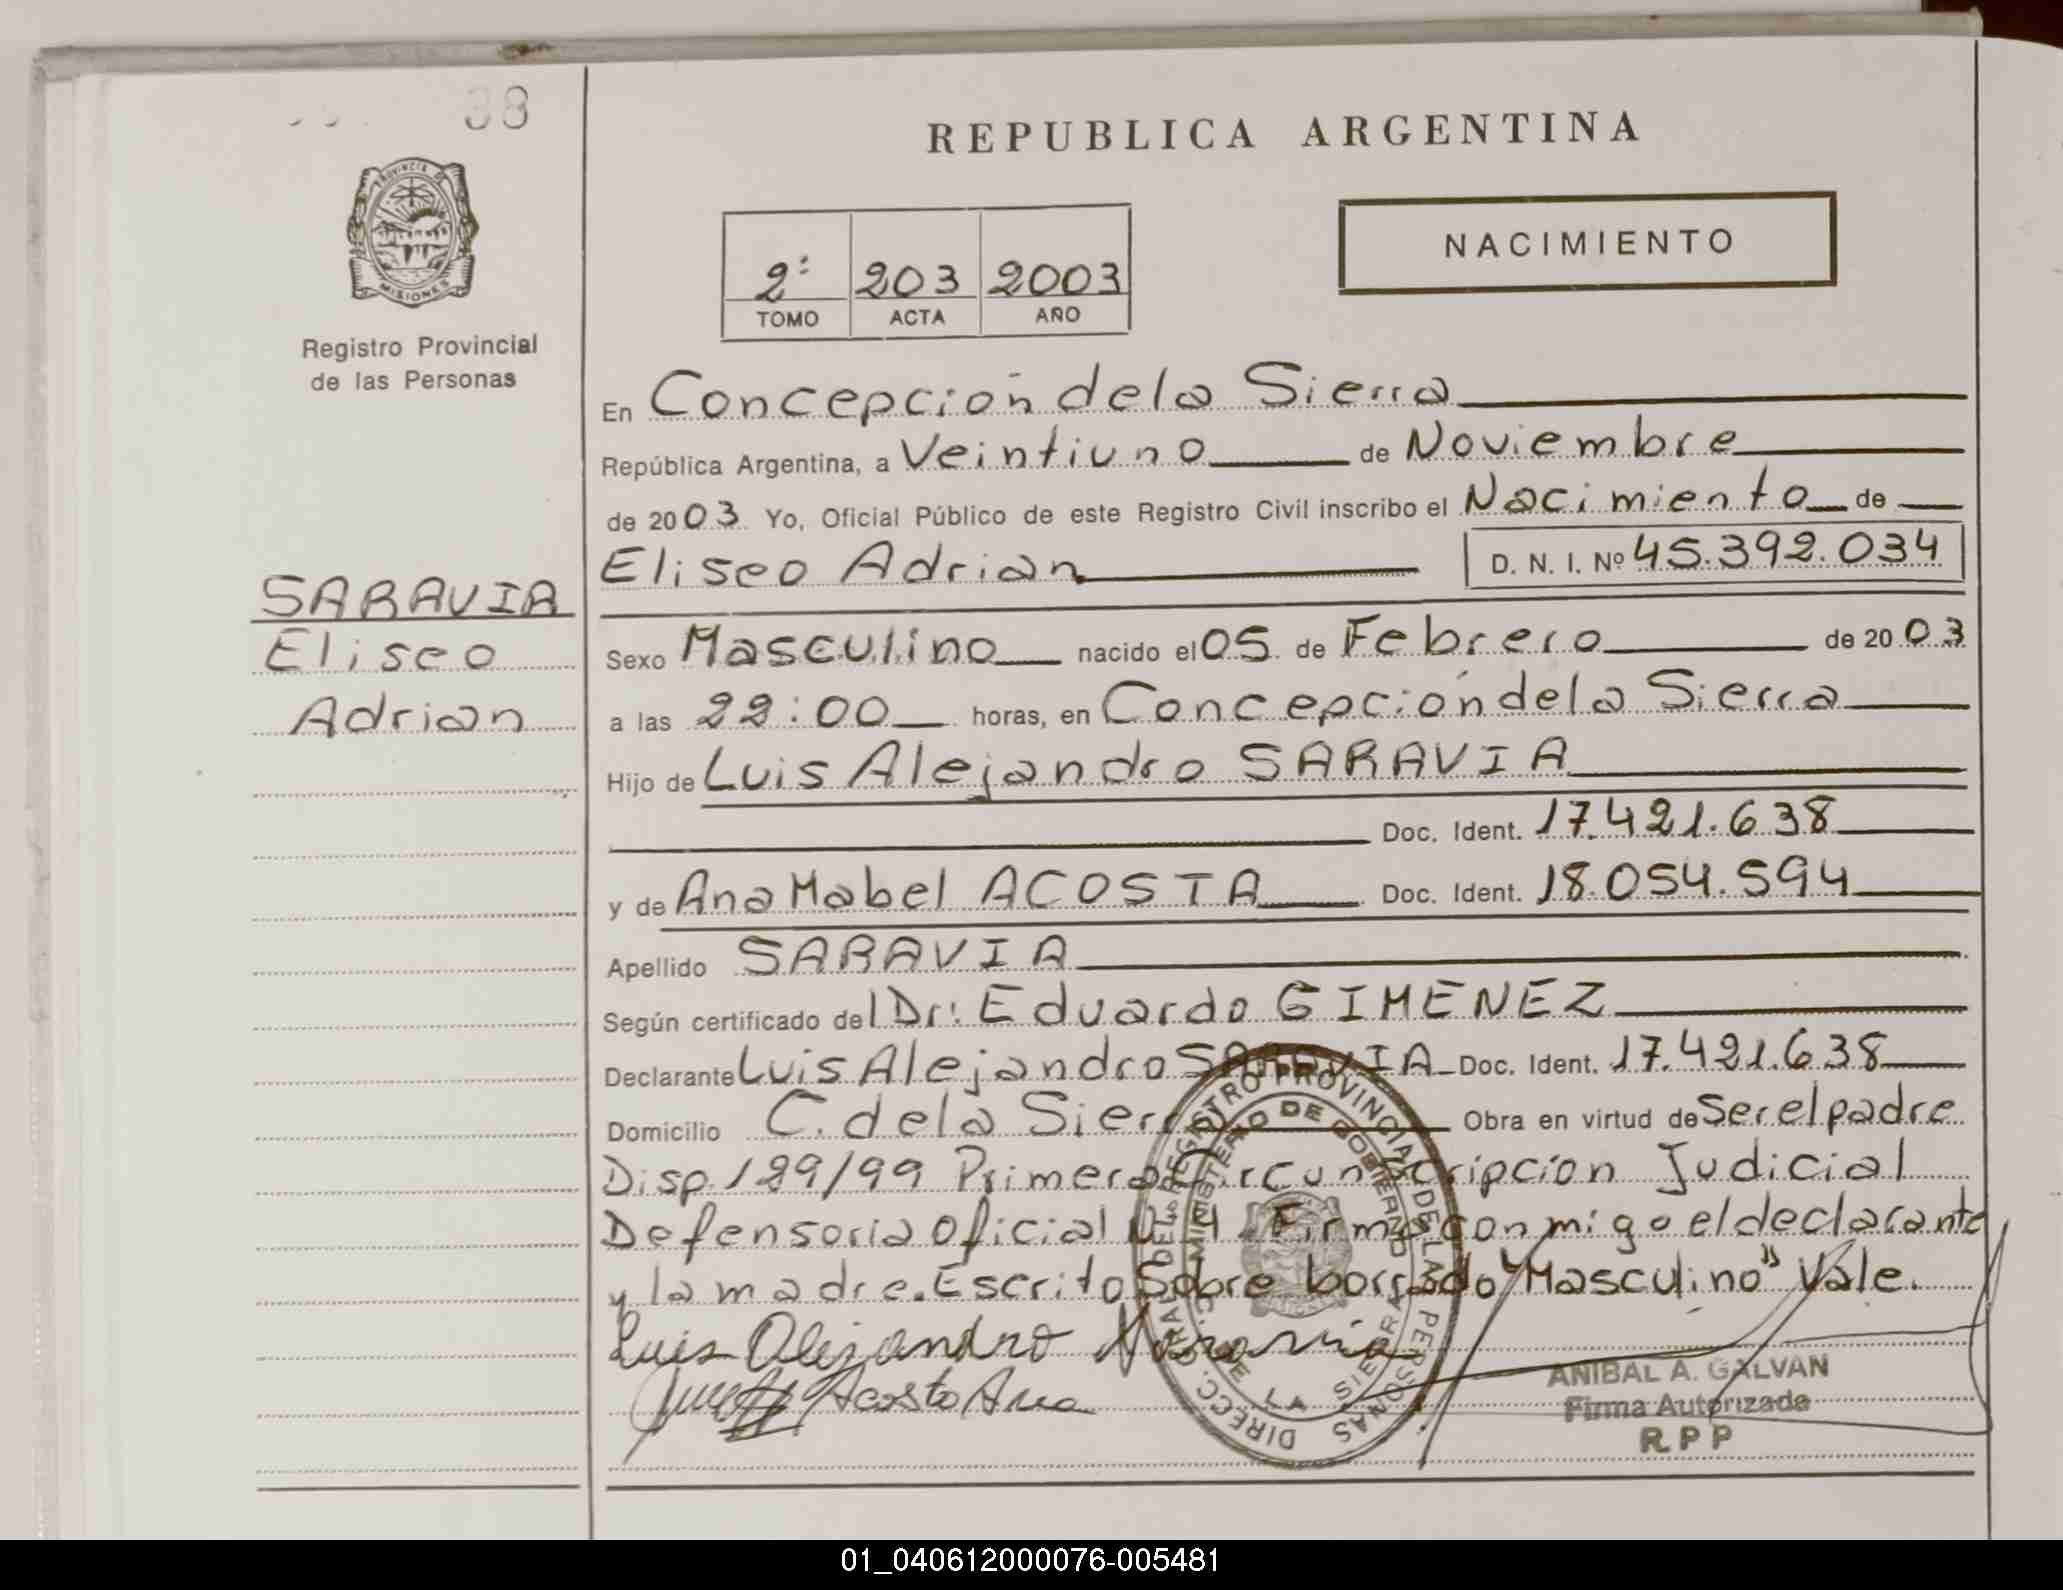 38
PROVINCIA DE
MISIONES
Registro Provincial
de las Personas
SARAVIA
Eliseo
Adrian
REPUBLICA ARGENTINA
NACIMIENTO
2º 203 2003
TOMO ACTA AÑO
En Concepción de la Sierra
República Argentina, a Veintiuno de Noviembre
de 2003 Yo, Oficial Público de este Registro Civil inscribo el Nacimiento de
Eliseo Adrian D. N. I. Nº 45.392.034
Sexo Masculino nacido el 05 de Febrero de 2003
a las 22:00 horas, en Concepción de la Sierra
Hijo de Luis Alejandro SARAVIA
Doc. Ident. 17.421.638
y de Ana Mabel ACOSTA Doc. Ident. 18.054.594
Apellido SARAVIA
Según certificado del Dr: Eduardo GIMENEZ
Declarante Luis Alejandro SARAVIA Doc. Ident. 17.421.638
Domicilio C. de la Sierra Obra en virtud de Ser el padre
Disp. 129/99 Primera Circunscripcion Judicial
Defensoria Oficial Firma conmigo el declarante
y la madre. Escrito Sobre borrado "Masculino" Vale.
Luis Alejandro Saravia
Acosta Ana
DIRECC. GRAL. DEL REGISTRO PROVINCIAL DE LAS PERSONAS
MINISTERIO DE GOBIERNO
C. DE LA SIERRA
ANIBAL A. GALVAN
Firma Autorizada
R.P.P
01_040612000076-005481